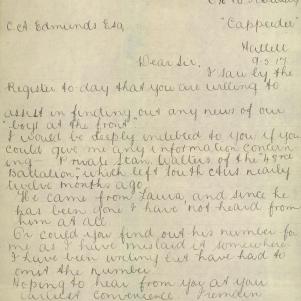 C.A. Edmunds Esq.
"Cappeedee"
Hallett
9-5-17
Dear Sir.
I saw by the
Register to day that you are willing to
assist in finding out any news of our
"boys at the front"
I would be deeply indebted to you if you
could give me any information concern
ing Private Stan. Walters of the 43rd
Battalion, which left South Aus nearly
twelve months ago.
He came from Laura, and since he
has been gone I have not heard from
him at all.
Or could you find out his number for
me as I have mislaid it somewhere
I have been writing but have had to
omit the number.
Hoping to hear from you at your
earliest convenience I remain